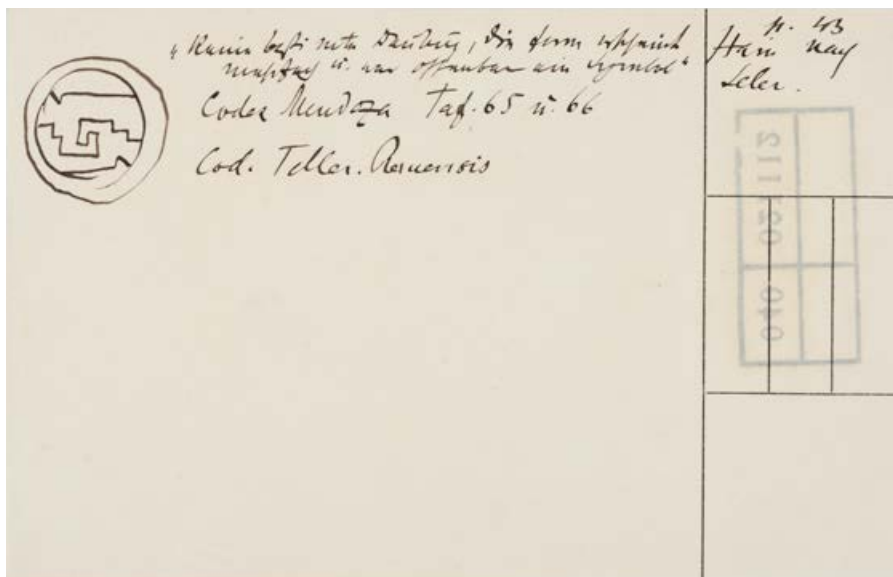 „Keine bestimmte Deutung, die form erscheint
mehrfach u. war offenbar ein Symbol"
Codex Mendoza Taf. 65 u. 66
Cod. Teller. Remensis
p. 43
nach
Seler.
040